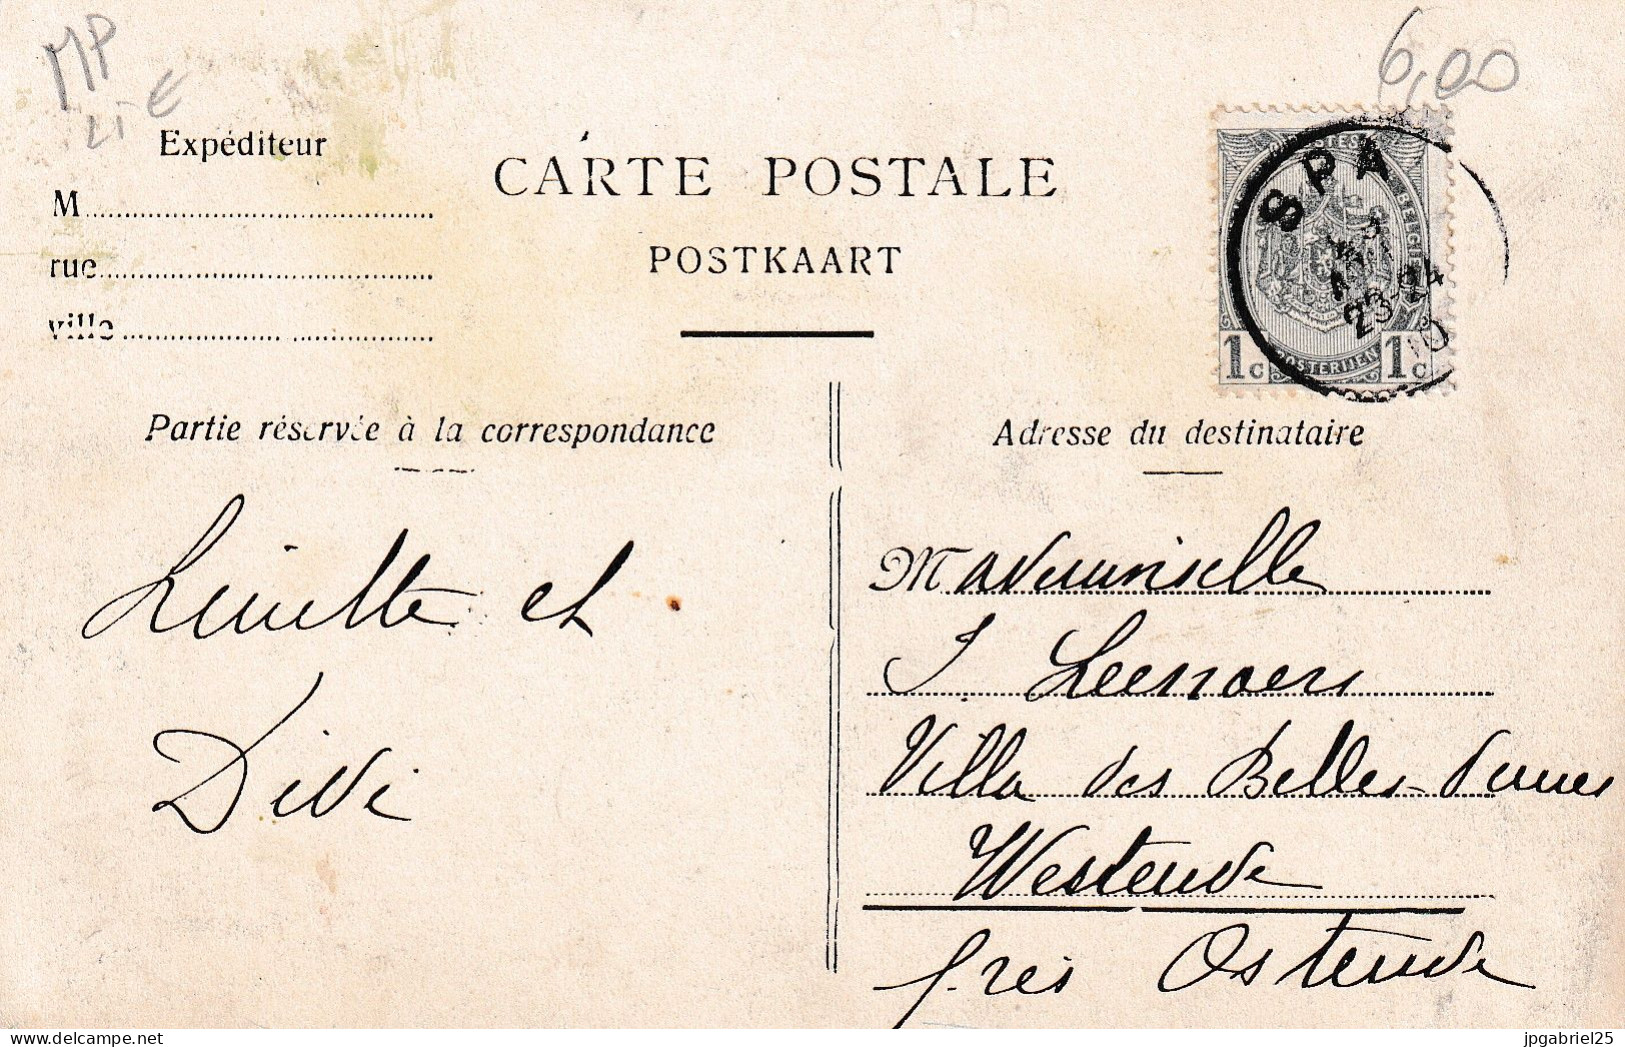 MP
LT €
6,00
Expéditeur
M
rue
ville
CARTE POSTALE
POSTKAART
SPA
23-24
10
BELGIE
POSTERIJEN
1c 1c
Partie réservée à la correspondance
Adresse du destinataire
et
Didi
Mademoiselle
J.
Villa des Belles-Dunes
Westende
près Ostende
delcampe.net
jpgabriel25